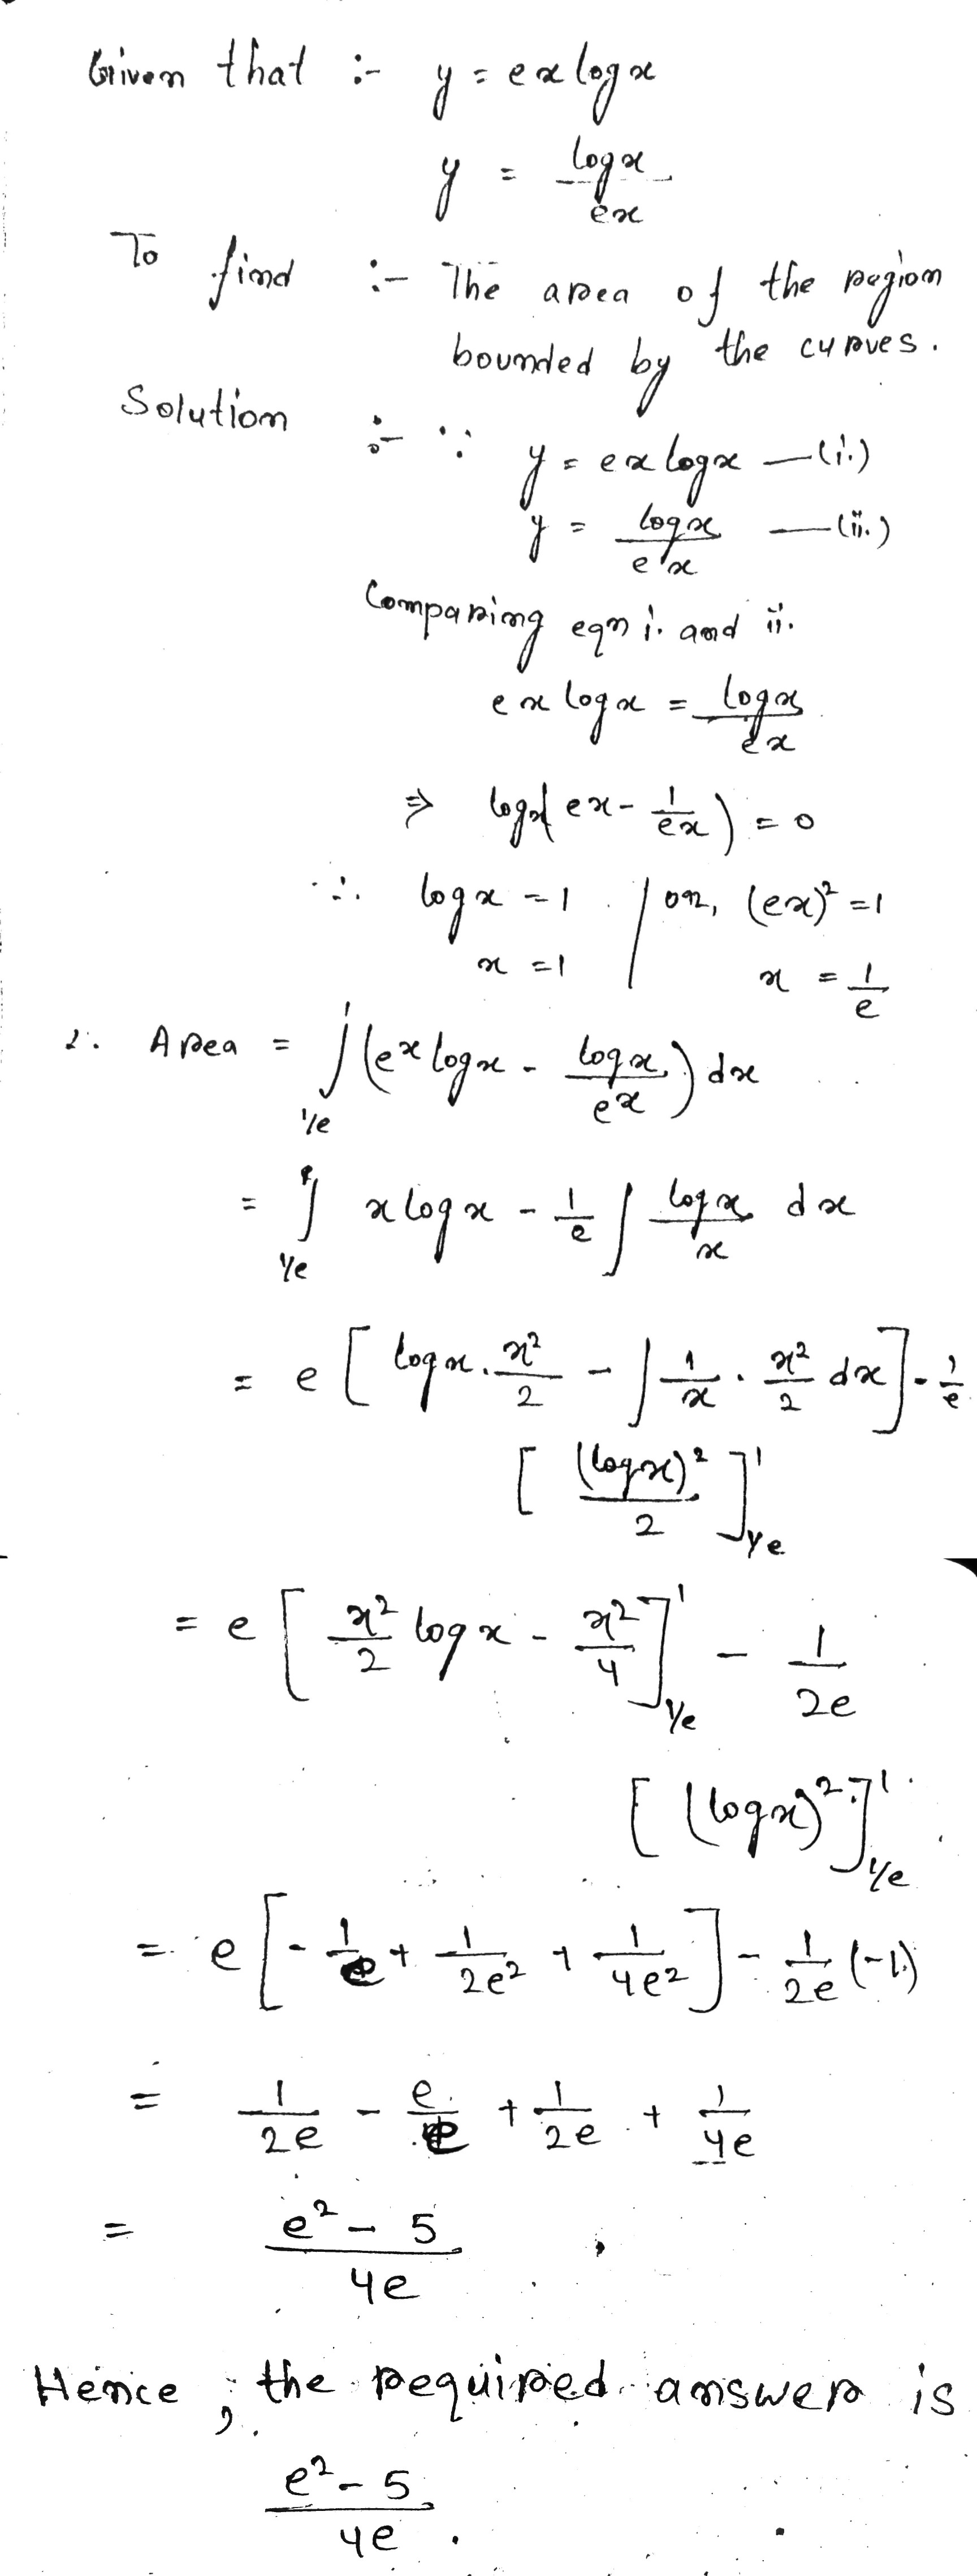 Given that :- y = ex log x
y = log x / ex
To find :- The area of the region
bounded by the curves.
Solution :- ∵ y = ex log x —(i.)
y = log x / ex —(ii.)
Comparing eqn i. and ii.
ex log x = log x / ex
⇒ log x (ex - 1/ex) = 0
∴ log x = 1 / or, (ex)² = 1
x = 1 x = 1/e
∴ Area = ∫_{1/e}^{1} (ex log x - log x / ex) dx
= ∫_{1/e} x log x - 1/e ∫ log x / x dx
= e [ log x . x²/2 - ∫ 1/x . x²/2 dx ] - 1/e
[ (log x)² / 2 ]_{1/e}^{1}
= e [ x²/2 log x - x²/4 ]_{1/e}^{1} - 1/2e
[ (log x)² ]_{1/e}^{1}
= e [ - 1/ + 1/2e² + 1/4e² ] - 1/2e (-1)
= 1/2e - e/ + 1/2e + 1/4e
= e² - 5 / 4e
Hence, the required answer is
e² - 5 / 4e .